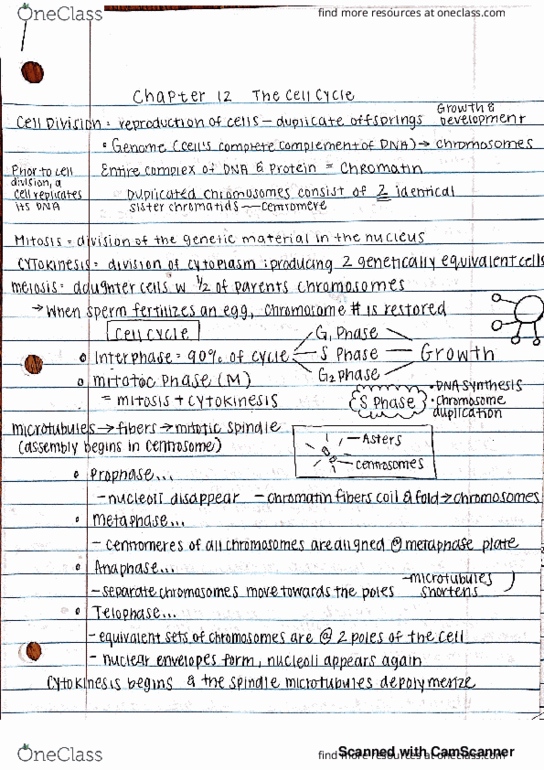 OneClass
find more resources at oneclass.com
Chapter 12 The Cell Cycle
Growth &
development
Cell Division = reproduction of cells — duplicate offsprings
• Genome (cell's complete complement of DNA) → chromosomes
Prior to cell
division, a
cell replicates
its DNA
Entire complex of DNA & Protein = Chromatin
Duplicated chromosomes consist of 2 identical
sister chromatids — centromere
Mitosis = division of the genetic material in the nucleus
Cytokinesis = division of cytoplasm : producing 2 genetically equivalent cells
Meiosis = daughter cells w 1/2 of parents chromosomes
→ When sperm fertilizes an egg, chromosome # is restored
Cell Cycle
Interphase = 90% of cycle
G1 Phase
S Phase
G2 phase
Growth
Mitotoc Phase (M)
= mitosis + cytokinesis
S Phase
• DNA synthesis
• chromosome
duplication
Microtubules → fibers → mitotic spindle
(assembly begins in centrosome)
Asters
centrosomes
• Prophase...
- nucleoli disappear - chromatin fibers coil & fold → chromosomes
• Metaphase...
- centromeres of all chromosomes are aligned @ metaphase plate
• Anaphase...
- separate chromosomes move towards the poles
- microtubules
shortens
• Telophase...
- equivalent sets of chromosomes are @ 2 poles of the cell
- nuclear envelopes form, nucleoli appears again
Cytokinesis begins & the spindle microtubules depolymerize
OneClass
find more resources at oneclass.com
Scanned with CamScanner